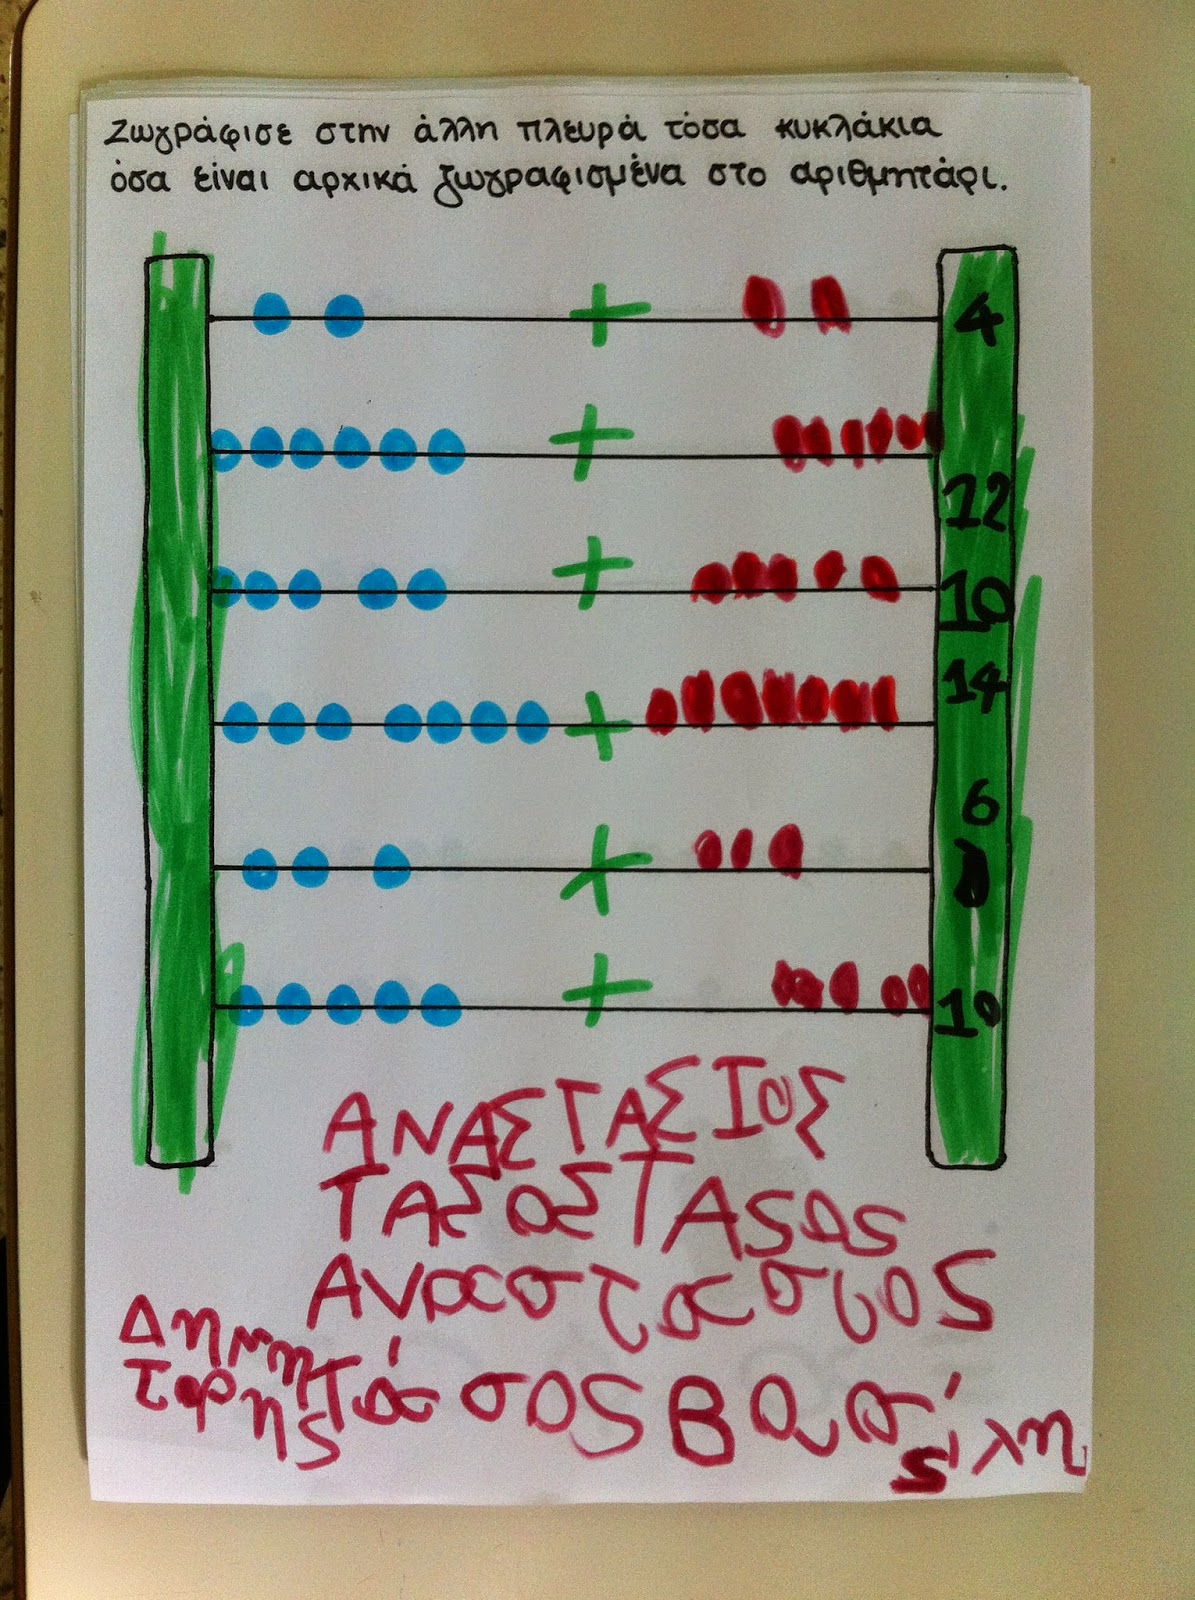 Ζωγράφισε στην άλλη πλευρά τόσα κυκλάκια
όσα είναι αρχικά ζωγραφισμένα στο αριθμητάρι.
+ 4
+
12
+ 10
14
+
6
+
+ 10
ΑΝΑΣΤΑΣΙΟΣ
ΤΑΣΟΣΤΑSOS
Αναστασιος
Δημη Τάσος Βασίλη
τρης ς